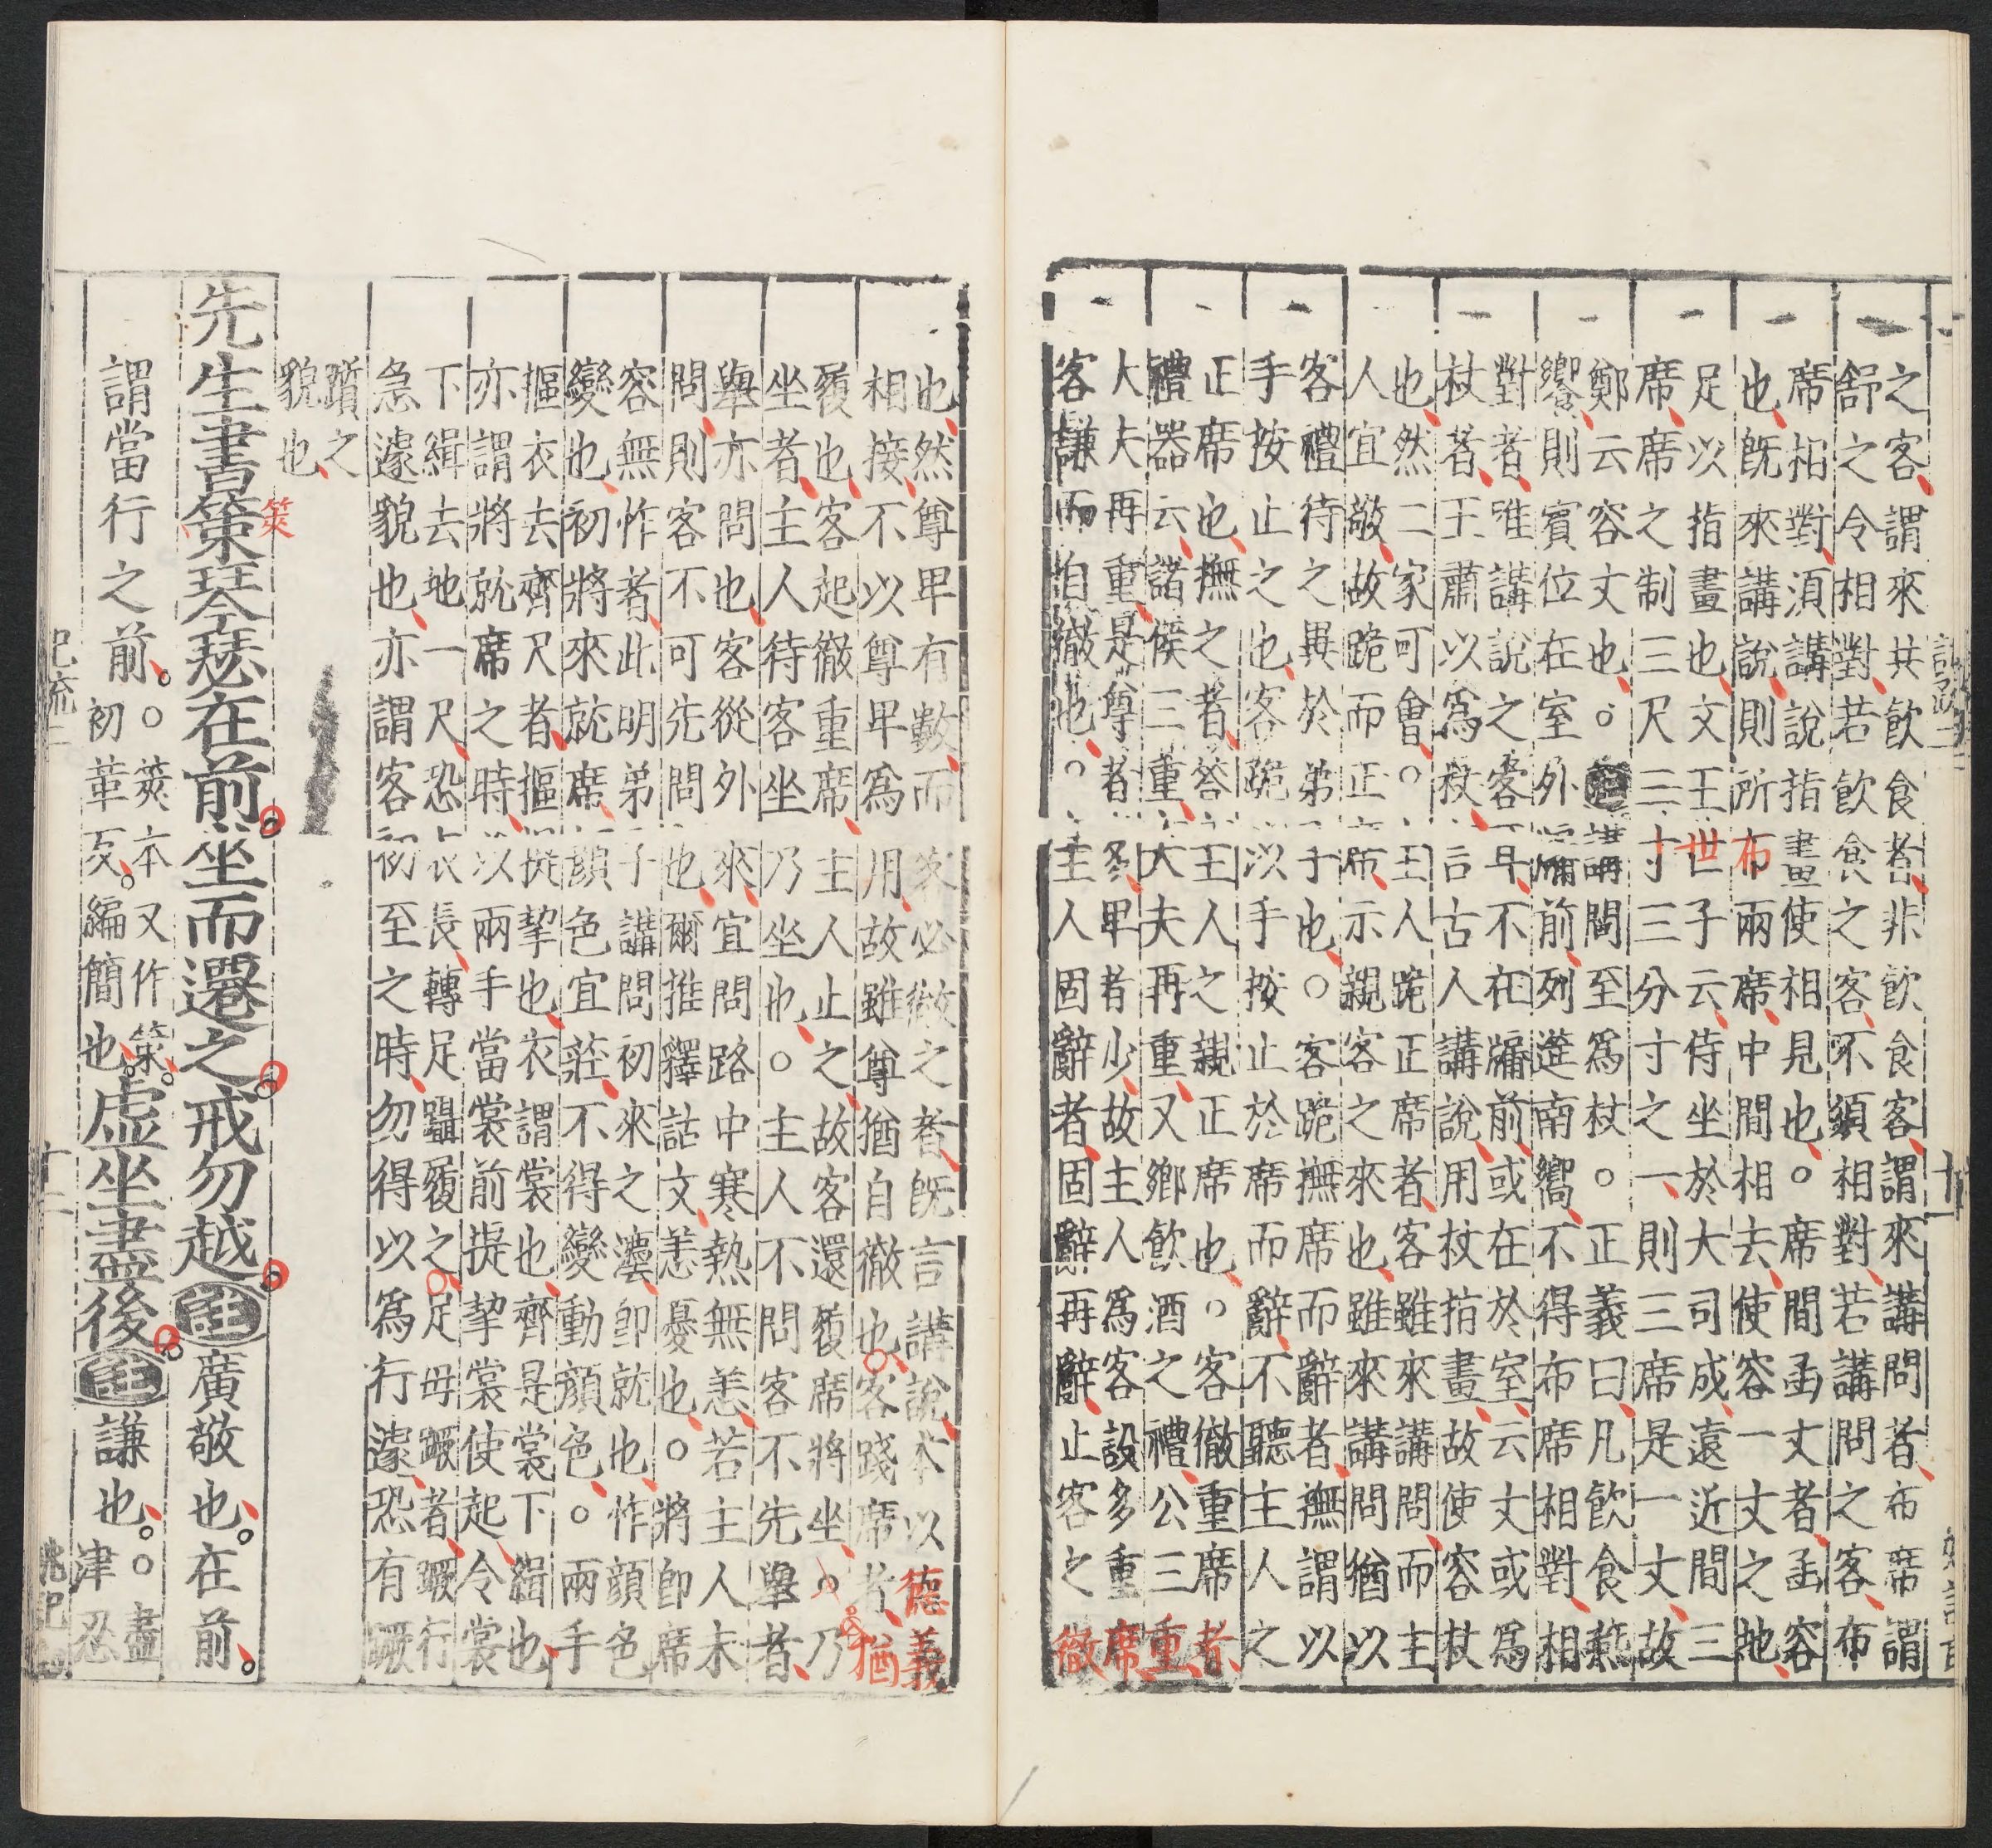 之客謂來共飲食者非飲食客謂來講問者布席謂
舒之令相對若飲食之客不須相對若講問之客布
席相對須講說指畫使相見也○席間函丈者函容
也旣來講說則所布兩席中間相去使容一丈之地
足以指畫也文王世子云侍坐於大司成遠近間三
席席之制三尺三寸三分寸之一則三席是一丈故
鄭云容丈也○講問至爲杖○正義曰凡飲食燕
饗則賓位在室外牖前列筵南嚮不得布席相對相
對者唯講說之客耳不在牖前或在於室云丈或爲
杖者王肅以爲杖言古人講說用杖指畫故使容杖
也然二家可會○主人跪正席者客雖來講問而主
人宜敬故跪而正席示親客之來也雖來講問猶以
客禮待之異於弟子也○客跪撫席而辭者撫謂以
手按止之也客跪以手按止於席而辭不聽主人之
正席也撫之者荅主人之親正席也○客徹重席者
禮器云諸侯三重大夫再重又鄉飲酒之禮公三重
大夫再重是尊者多卑者少故主人爲客設多重席
客謙而自徹也○主人固辭者固辭再辭止客之徹
也然尊卑有數而客必徹之者旣言講說本以德義
相接不以尊卑爲用故雖尊猶自徹也客踐席者猶
履也客起徹重席主人止之故客還履席將坐○乃
坐者主人待客坐乃坐也○主人不問客不先舉者
舉亦問也客從外來宜問路中寒熱無恙若主人未
問則客不可先問也爾推釋詁文恙憂也○將即席
容無怍者此明弟子講問初來之灋即就也怍顏色
變也初將來就席顏色宜莊不得變動顏色○兩手
摳衣去齊尺者摳提挈也衣謂裳也齊是裳下緝也
亦謂將就席之時以兩手當裳前提挈裳使起令裳
下緝去地一尺恐衣長轉足躡履之足毋蹶者蹶行
急遽貌也亦謂客初至之時勿得以爲行遽恐有蹶
躓之
貌也
策
先生書策琴瑟在前坐而遷之戒勿越註廣敬也在前
謂當行之前○筴本又作策初革反編簡也虛坐盡後註謙也○盡津忍